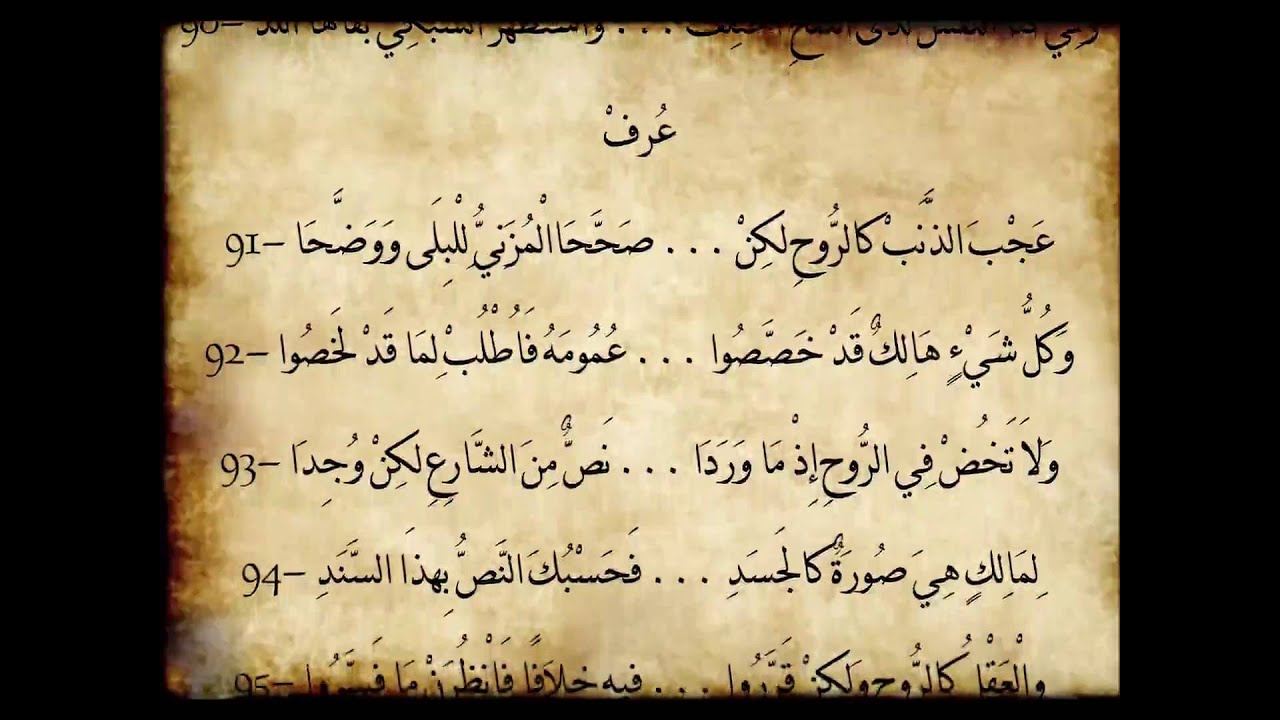 90– وَاسْتَظْهَرَ السُّبْكِي بَقَاهَا
عُرِفْ
91– عَجْبَ الذَّنَبْ كَالرُّوحِ لكِنْ ... صَحَّحَا الْمُزَنِيُّ لِلْبِلَى وَوَضَّحَا
92– وَكُلُّ شَيْءٍ هَالِكٌ قَدْ خَصَّصُوا ... عُمُومَهُ فَاُطْلُبْ لِمَا قَدْ لَخَصُوا
93– وَلاَ تَخُضْ فِي الرُّوحِ إِذْ مَا وَرَدَا ... نَصٌّ مِنَ الشَّارِعِ لكِنْ وُجِدَا
94– لِمَالِكٍ هِيَ صُورَةٌ كَالجَسَدِ ... فَحَسْبُكَ النَّصُّ بِهذَا السَّنَدِ
95– وَالْعَقْلُ كَالرُّوحِ وَلكِنْ قَرَّرُوا ... فِيهِ خِلَافًا فَانْظُرَنْ مَا فَسَّرُوا